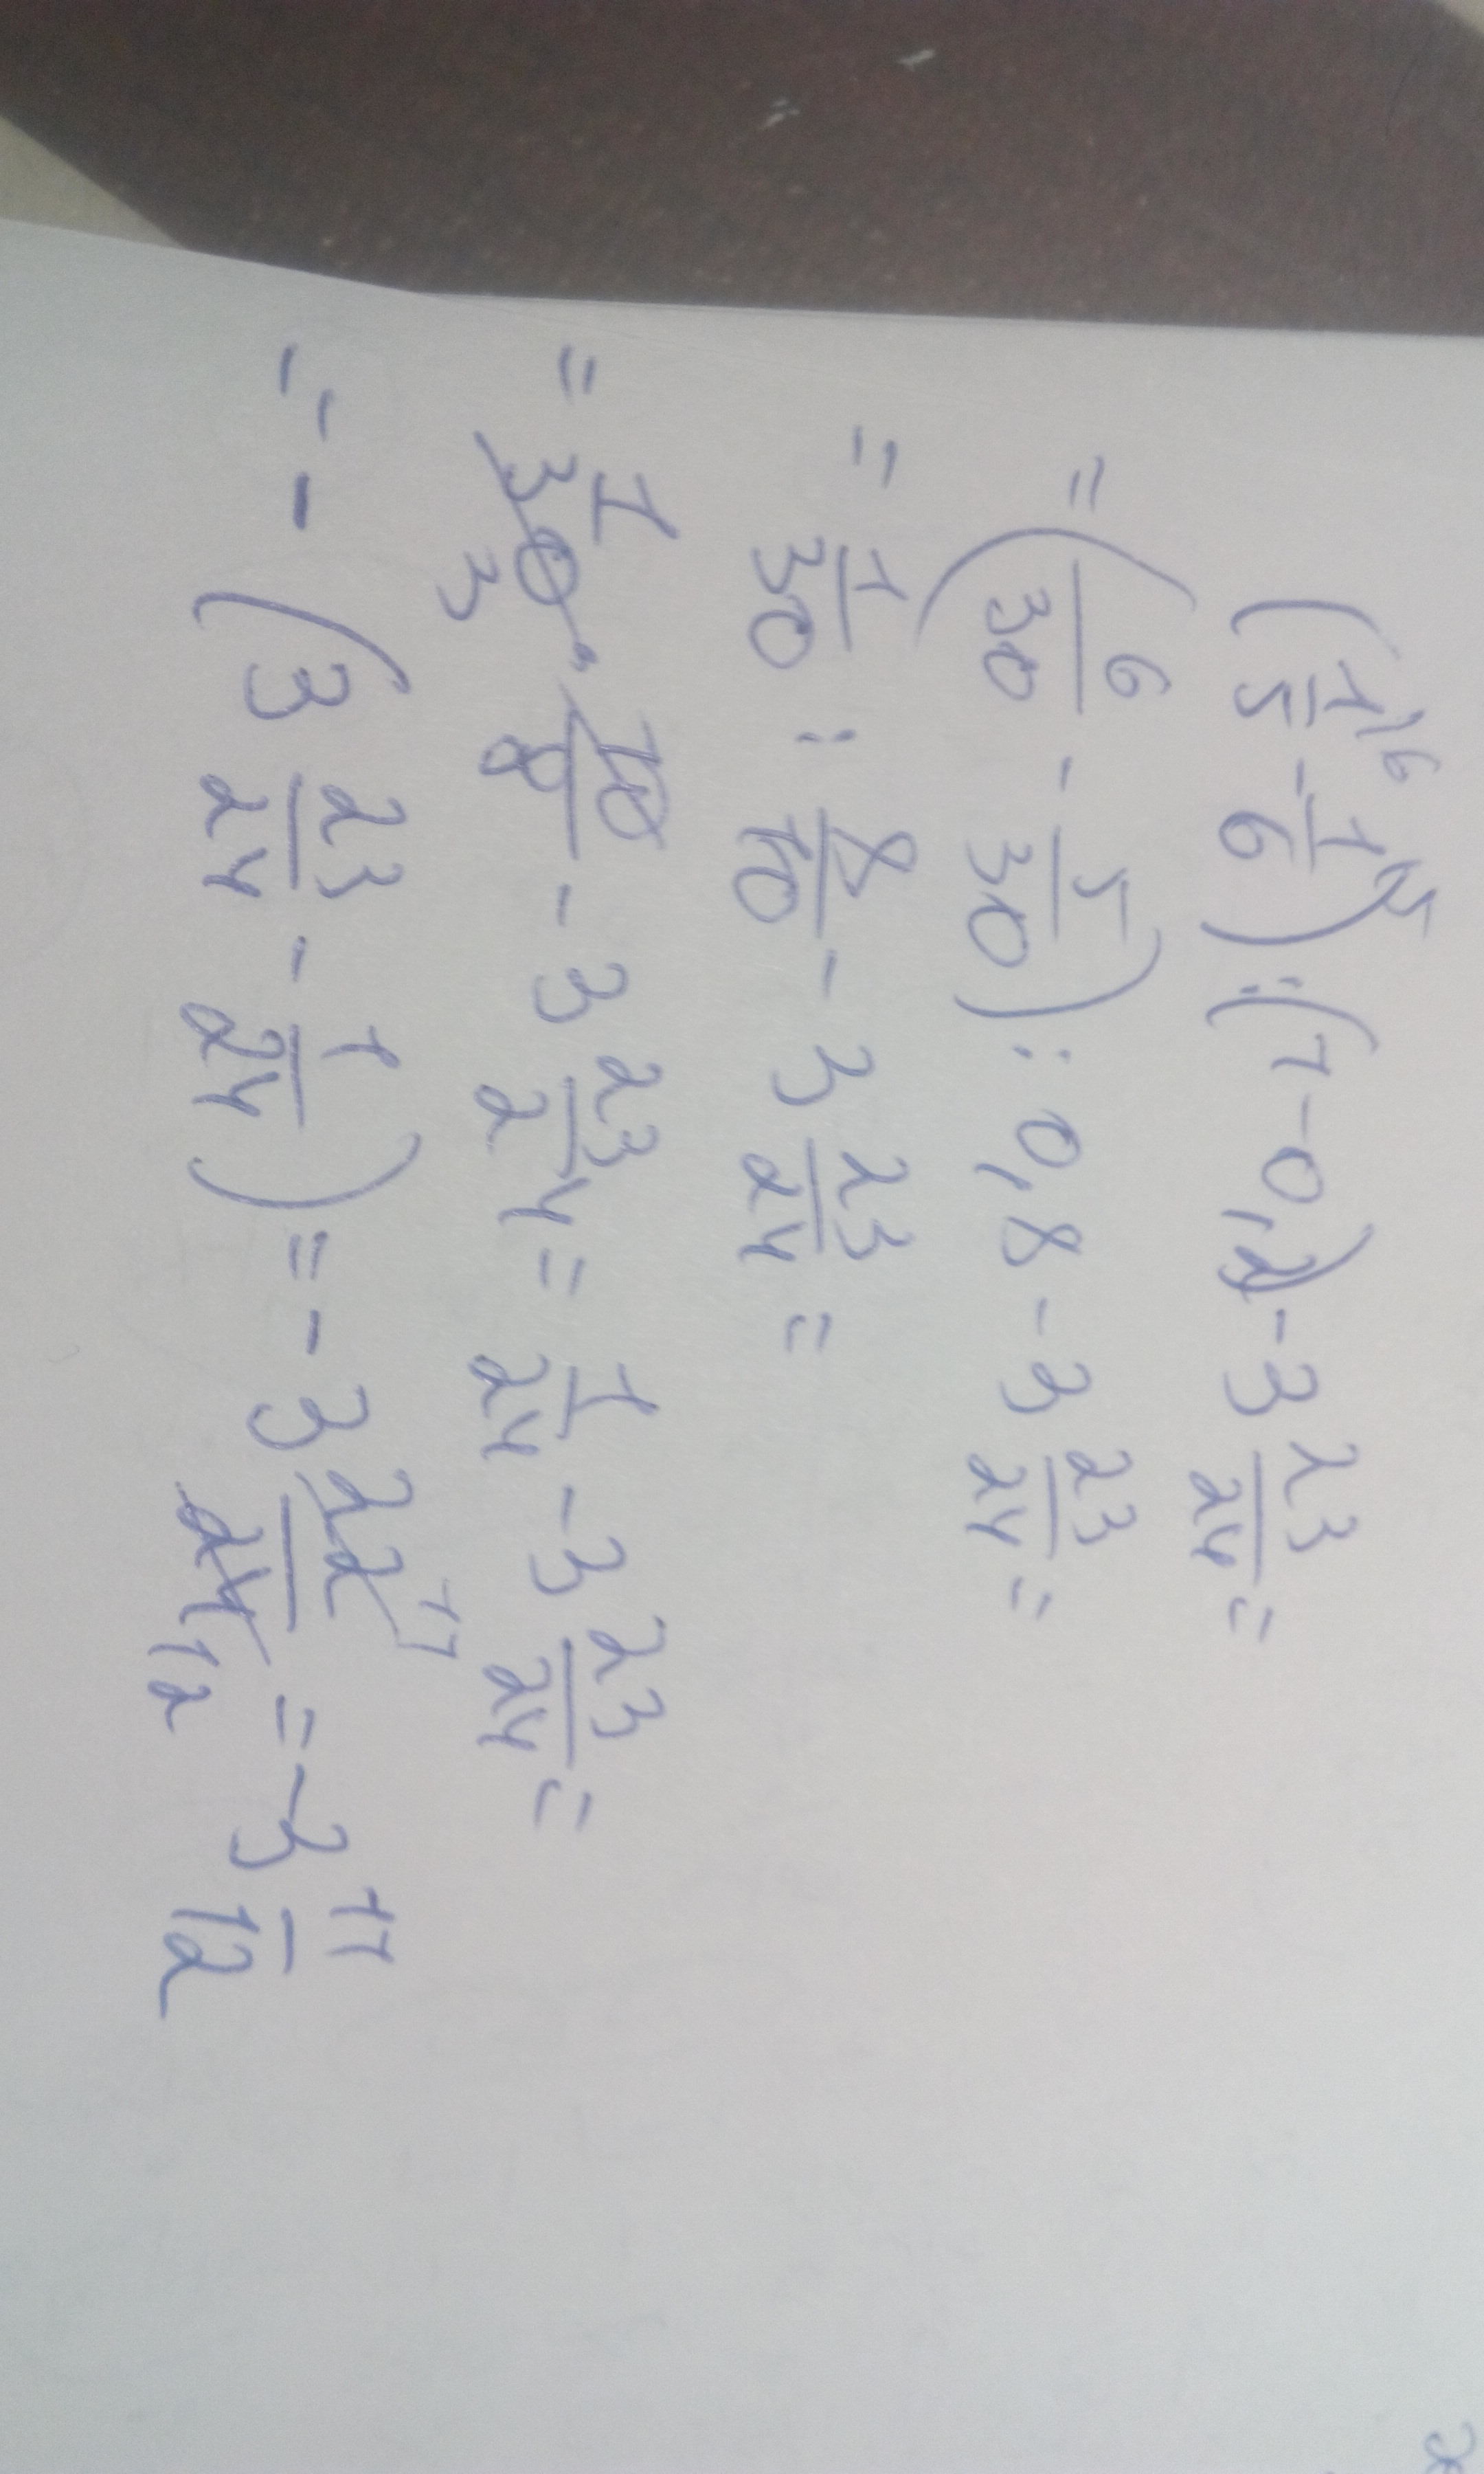 (1/5\6 - 1/6\5) : (1 - 0,2) - 3 23/24 =
= (6/30 - 5/30) : 0,8 - 3 23/24 =
= 1/30 : 8/10 - 3 23/24 =
= 1/30 3 · 10/8 - 3 23/24 = 1/24 - 3 23/24 =
= - (3 23/24 - 1/24) = - 3 22 11/24 12 = - 3 11/12